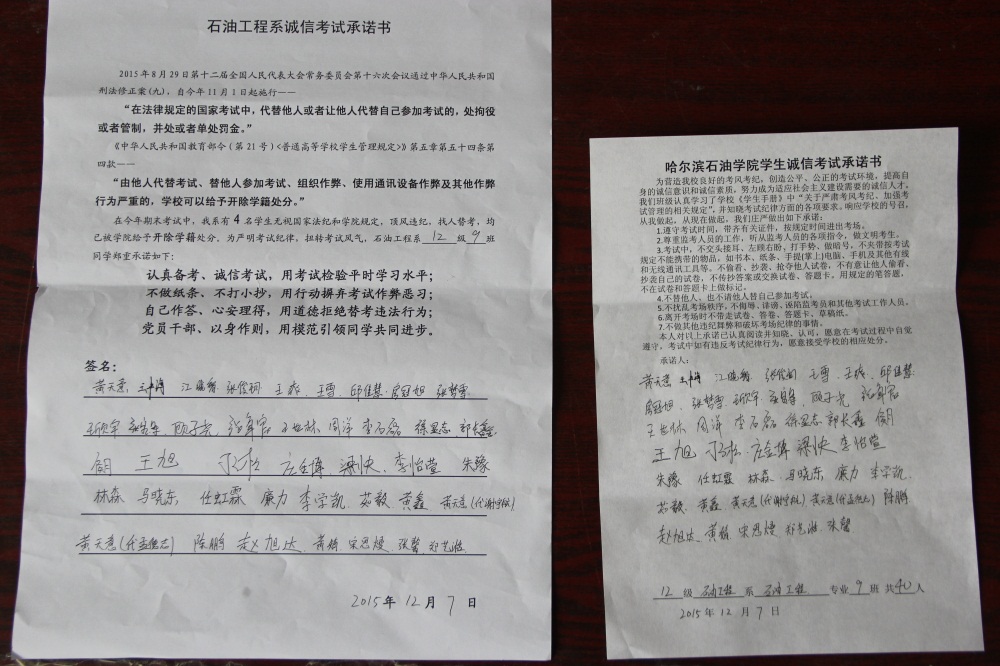 石油工程系诚信考试承诺书
2015年8月29日第十二届全国人民代表大会常务委员会第十六次会议通过中华人民共和国
刑法修正案(九)，自今年11月1日起施行——
“在法律规定的国家考试中，代替他人或者让他人代替自己参加考试的，处拘役
或者管制，并处或者单处罚金。”
《中华人民共和国教育部令（第21号）<普通高等学校学生管理规定>》第五章第五十四条第
四款——
“由他人代替考试、替他人参加考试、组织作弊、使用通讯设备作弊及其他作弊
行为严重的，学校可以给予开除学籍处分。”
在今年期末考试中，我系有4名学生无视国家法纪和学院规定，顶风违纪，找人替考，均
已被学院给予开除学籍处分，为严明考试纪律，扭转考试风气，石油工程系 12 级 9 班
同学郑重承诺如下：
认真备考、诚信考试，用考试检验平时学习水平；
不做纸条、不打小抄，用行动摒弃考试作弊恶习；
自己作答、心安理得，用道德拒绝替考违法行为；
党员干部、以身作则，用模范引领同学共同进步。
签名：
黄天意 王雪 邱佳慧 张梦雪
王世林 周洋 李石磊 徐显志 郭长鑫
王旭 庄金博 梁快 李怡萱 朱豫
林森 马晓东 任虹霖 廉力 李学凯 苏毅 黄鑫 黄天意
黄天意 陈鹏 赵旭达 黄楠 宋恩煖 张馨
2015年12月7日
哈尔滨石油学院学生诚信考试承诺书
为营造我校良好的考风考纪，创造公平、公正的考试环境，提高自
身的诚信意识和诚信素质，努力成为适应社会主义建设需要的诚信人才，
我们班级认真学习了学校《学生手册》中“关于严肃考风考纪、加强考
试管理的相关规定”，并知晓考试纪律方面的各项要求。响应学校的号召，
从我做起，从现在做起，我们庄严做出如下承诺：
1.遵守考试时间，带齐有关证件，按规定时间进出考场。
2.尊重监考人员的工作，听从监考人员的各项指令，做文明考生。
3.考试中，不交头接耳、左顾右盼、打手势、做暗号，不夹带按考试
规定不能携带的物品，如书本、纸条、手提(掌上)电脑、手机及其他有线
和无线通讯工具等。不偷看、抄袭、抢夺他人试卷，不有意让他人偷看、
抄袭自己的试卷，不传抄答案或交换试卷、答题卡，用规定的笔答题，
不在试卷和答题卡上做标记。
4.不替他人、也不请他人替自己参加考试。
5.不扰乱考场秩序，不侮辱、诽谤、诬陷监考员和其他考试工作人员。
6.离开考场时不带走试卷、答卷、答题卡、草稿纸。
7.不做其他违纪舞弊和破坏考场纪律的事情。
本人对以上承诺已认真阅读并知晓、认可，愿意在考试过程中自觉
遵守，考试中如有违反考试纪律行为，愿意接受学校的相应处分。
承诺人：
黄天意 王雪 邱佳慧
张梦雪
王世林 周洋 李石磊 徐显志 郭长鑫
王旭 庄金博 梁快 李怡萱
朱豫 任虹霖 林森 马晓东 廉力 李学凯
苏毅 黄鑫 黄天意 黄天意 陈鹏
赵旭达 黄楠 宋恩煖 张馨
12 级 石油工程 系 石油工程 专业 9 班 共40人
2015年12月7日